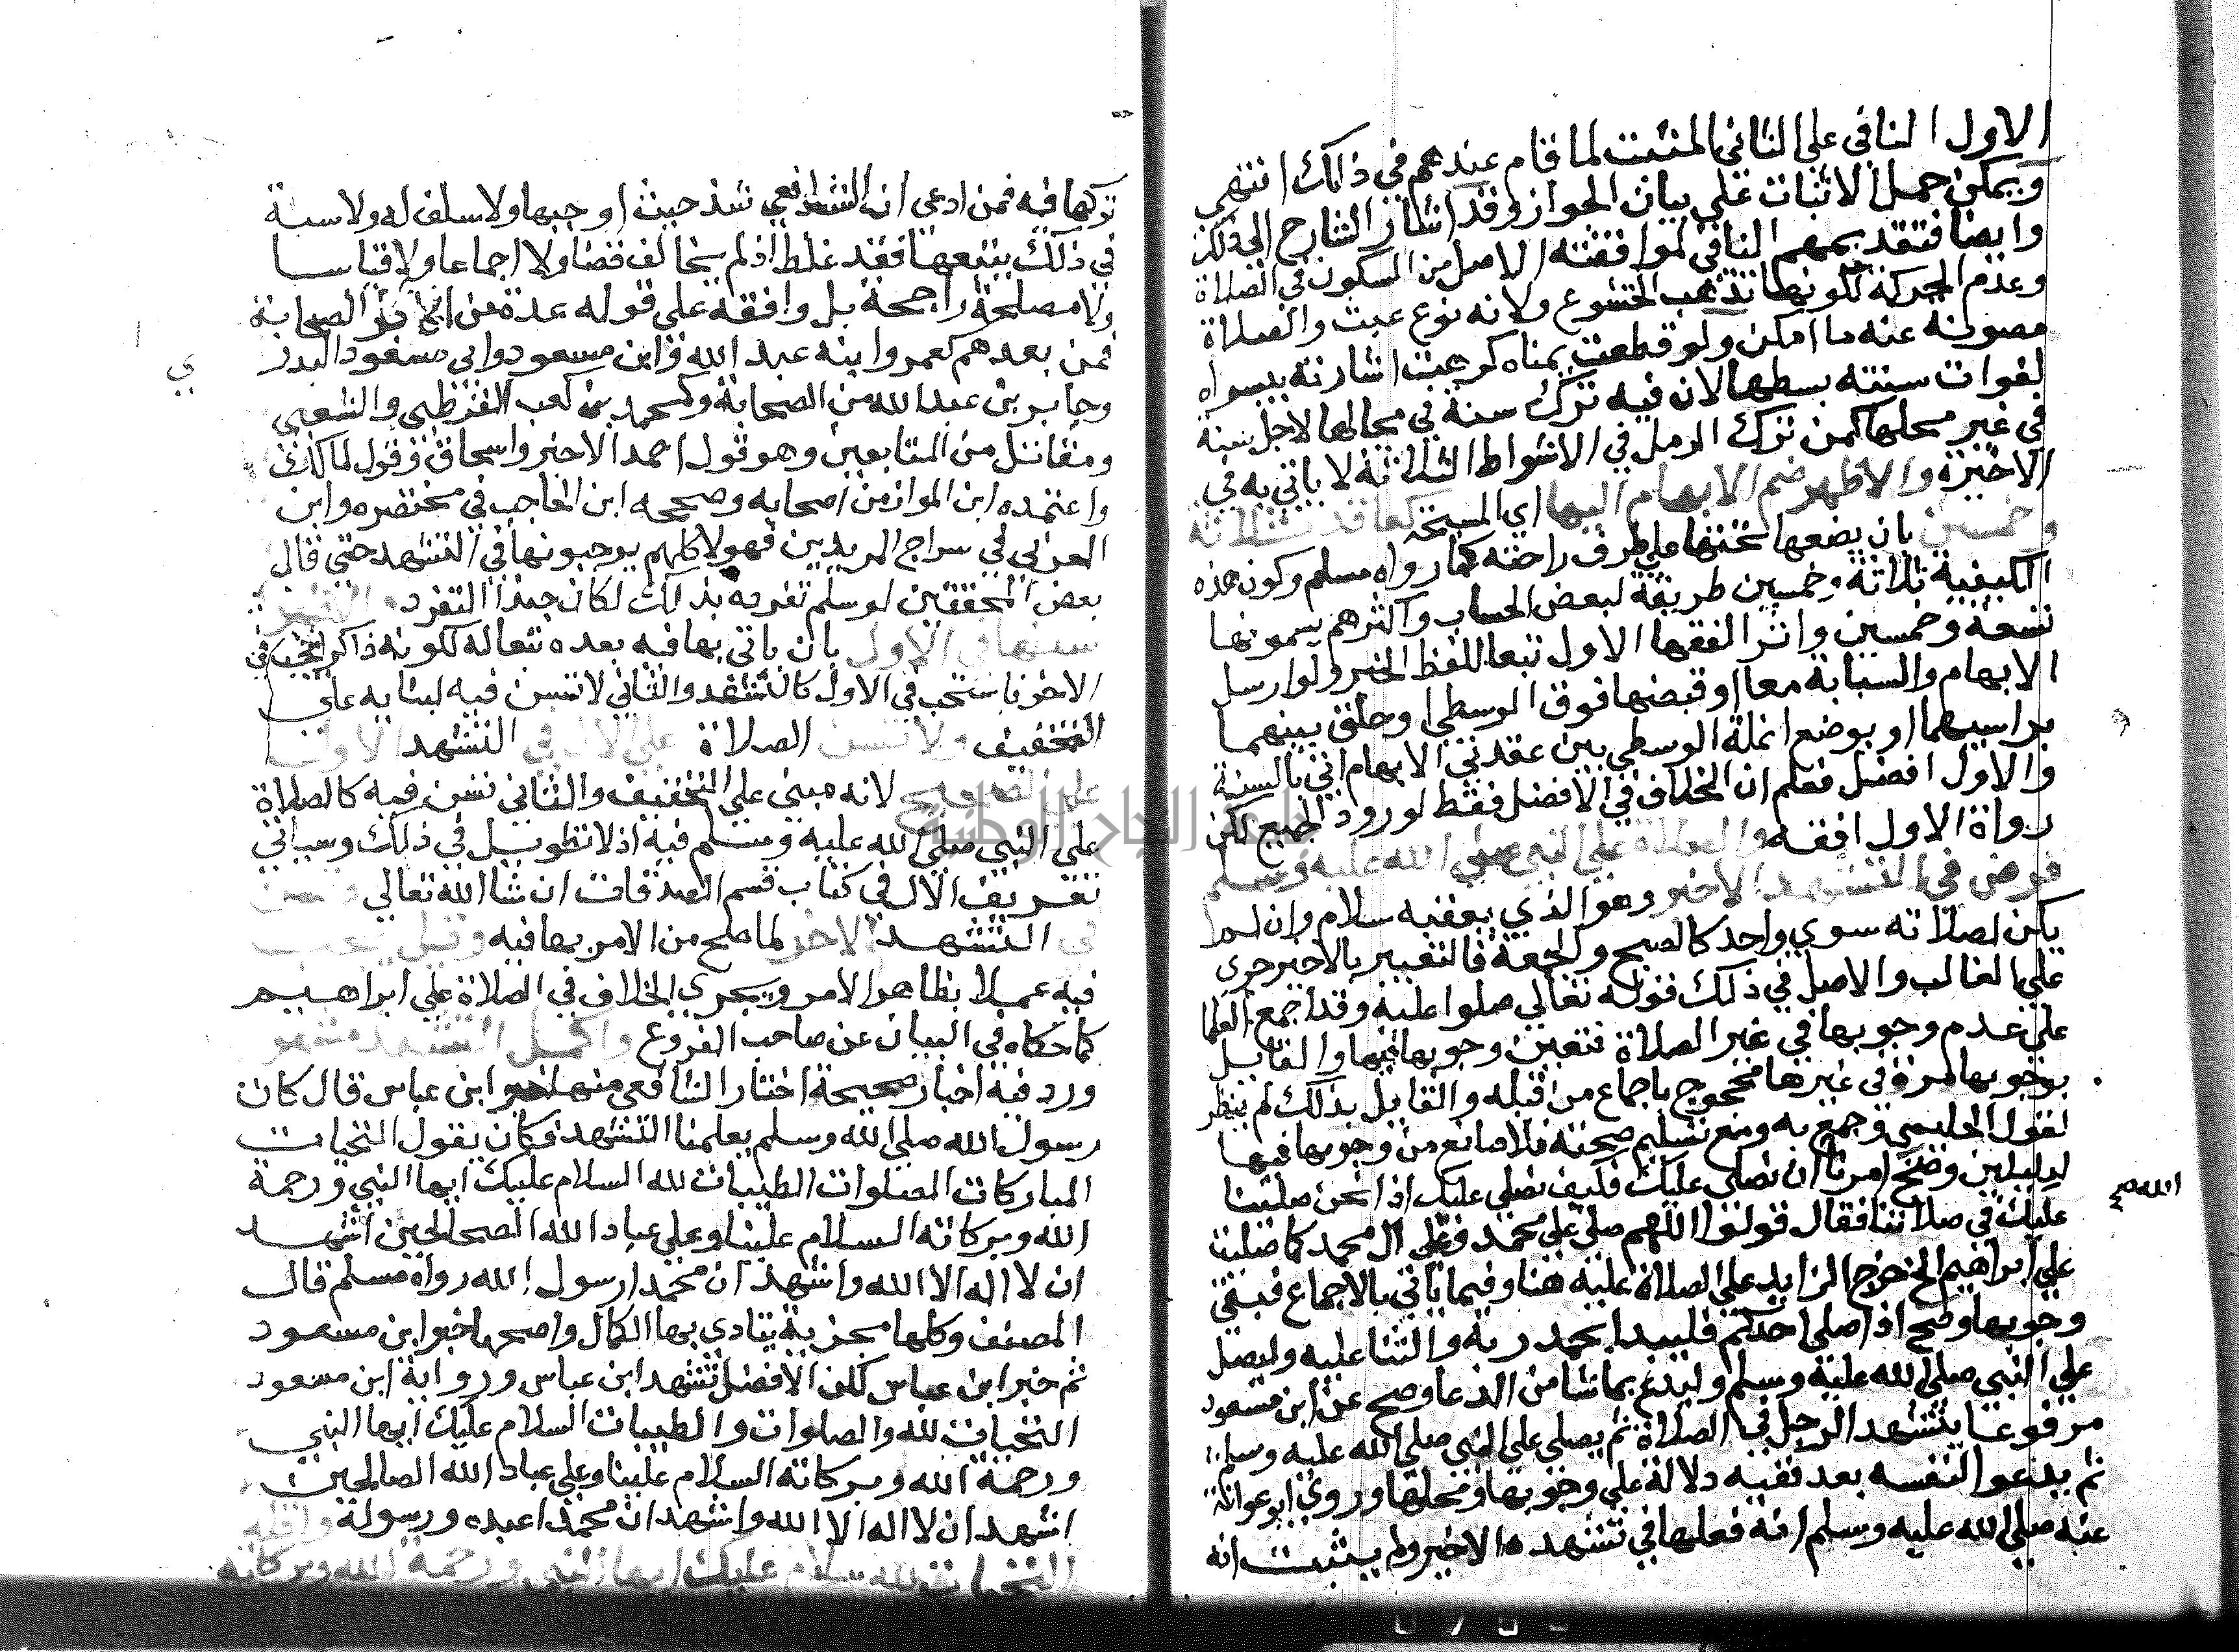 الاول النافي علي الثاني المثبت لما قام عندهم في ذالك انتهي
ويمكن حمل الاثبات علي بيان الجواز وقد اشار الشارح الي ذلك
وايضا فتقديمهم النافي لموافقته الاصل من السكون في الصلاة
وعدم الحركة لكونها تذهب الخشوع ولانه نوع عبث والصلاة
مصونة عنه ما امكن ولو قطعت يمناه كرهت اشارته بيسراه
لفوات سنته بسطها لان فيه ترك سنة في محالها لاجل سنة
في غير محلها كمن ترك الرمل في الاشواط الثلاثة لا ياتي به في
الاخيرة والاظهر ضم الابهام اليها اي المسبحة كعاقد ثلاثة
وخمسين بان يضعها تحتها علي طرف راحته كما رواه مسلم وكون هذه
الكيفية ثلاثة وخمسين طريقة لبعض الحساب واكثرهم يسمونها
تسعة وخمسين واثر الفقها الاول تبعا للفظ الخبر ولو ارسل
الابهام والسبابة معا او قبضها فوق الوسطي او حلق بينهما
براسيهما او بوضع انملة الوسطي بين عقدتي الابهام اتي بالسنة
والاول افضل فعلم ان الخلاف في الافضل فقط لورود الجميع لكن
رواة الاول افقه والصلاة علي النبي صلي الله عليه وسلم
فرض في التشهد الاخير وهو الذي يعقبه سلام وان لم
يكن لصلاته سوي واحد كالصبح والجمعة فالتعبير بالاخير جري
علي الغالب والاصل في ذلك قوله تعالي صلوا عليه وقد اجمع العلما
علي عدم وجوبها في غير الصلاة فتعين وجوبها فيها والقايل
بوجوبها مرة في غيرها محجوج باجماع من قبله والقايل بذلك لم ينظر
لقول الحليمي وجمع به ومع تسليم صحته فلا مانع من وجوبها فيها
لدليلين وصح امرنا ان نصلي عليك فكيف نصلي عليك اذا نحن صلينا
عليك في صلاتنا فقال قولوا اللهم صلي علي محمد وعلي ال محمد كما صليت
علي ابراهيم الخ خرج الزايد علي الصلاة عليه هنا وفيما ياتي بالاجماع فبقي
وجوبها وصح اذا صلي احدكم فليبدا بحمد ربه والثنا عليه وليصل
علي النبي صلي الله عليه وسلم وليدع بما شا من الدعا وصح عن ابن مسعود
مرفوعا يتشهد الرجل في الصلاة ثم يصلي علي النبي صلي الله عليه وسلم
ثم يدعوا لنفسه بعد نفيه دلالة علي وجوبها ومحلها وروي ابو عوانة
عنه صلي الله عليه وسلم انه فعلها في تشهده الاخير ولم يثبت انه
الله صح
تركها فيه فمن ادعي ان الشافعي شذ حيث اوجبها ولا سلف له ولا سنة
في ذلك يتبعها فقد غلط اذ لم يخالف نصا ولا اجماعا ولا قياسا
ولا مصلحة راجحة بل وافقه علي قوله عدة من الصحابة
فمن بعدهم كعمر وابنه عبد الله وابن مسعود وابي مسعود البدر
ي
وجابر بن عبد الله من الصحابة وكمحمد بن كعب القرظي والشعبي
ومقاتل من التابعين وهو قول احمد الاخير واسحاق وقول لمالك
واعتمده ابن المواز من اصحابه وصححه ابن الحاجب في مختصره وابن
العربي في سراج المريدين فهولا كلهم يوجبونها في التشهد حتي قال
بعض المحققين لو سلم تفرده بذلك لكان حبذا التفرد
سنها في الاول بان ياتي بها فيه بعده تبعا له لكونه ذاكرا تجب في
الاخر فاستحب في الاول كالتشهد والثاني لا تسن فيه لبنايه علي
التخفيف ولا تسن الصلاة علي الال في التشهد الاول
علي الصحيح لانه مبني علي التخفيف والثاني تسن فيه كالصلاة
علي النبي صلي الله عليه وسلم فيه اذ لا تطويل في ذلك وسياتي
تعريف الال في كتاب قسم الصدقات ان شا الله تعالي وتسن
في التشهد الاخر لما صح من الامر بها فيه وقيل تجب
فيه عملا بظاهر الامر ويجري الخلاف في الصلاة علي ابراهيم
كما حكاه في البيان عن صاحب الفروع واكمل التشهد مشهور
ورد فيه اخبار صحيحة اختار الشافعي منها خبر ابن عباس قال كان
رسول الله صلي الله وسلم يعلمنا التشهد فكان يقول التحيات
المباركات الصلوات الطيبات لله السلام عليك ايها النبي ورحمة
الله وبركاته السلام علينا وعلي عباد الله الصالحين اشهد
ان لا اله الا الله واشهد ان محمدا رسول الله رواه مسلم قال
المصنف وكلها مجزية يتادي بها الكمال واصحها خبر ابن مسعود
ثم خبر ابن عباس لكن الافضل تشهد ابن عباس ورواية ابن مسعود
التحيات لله والصلوات والطيبات السلام عليك ايها النبي
ورحمة الله وبركاته السلام علينا وعلي عباد الله الصالحين
اشهد ان لا اله الا الله واشهد ان محمدا عبده ورسوله واقله
التحيات لله سلام عليك ايها النبي ورحمة الله وبركاته